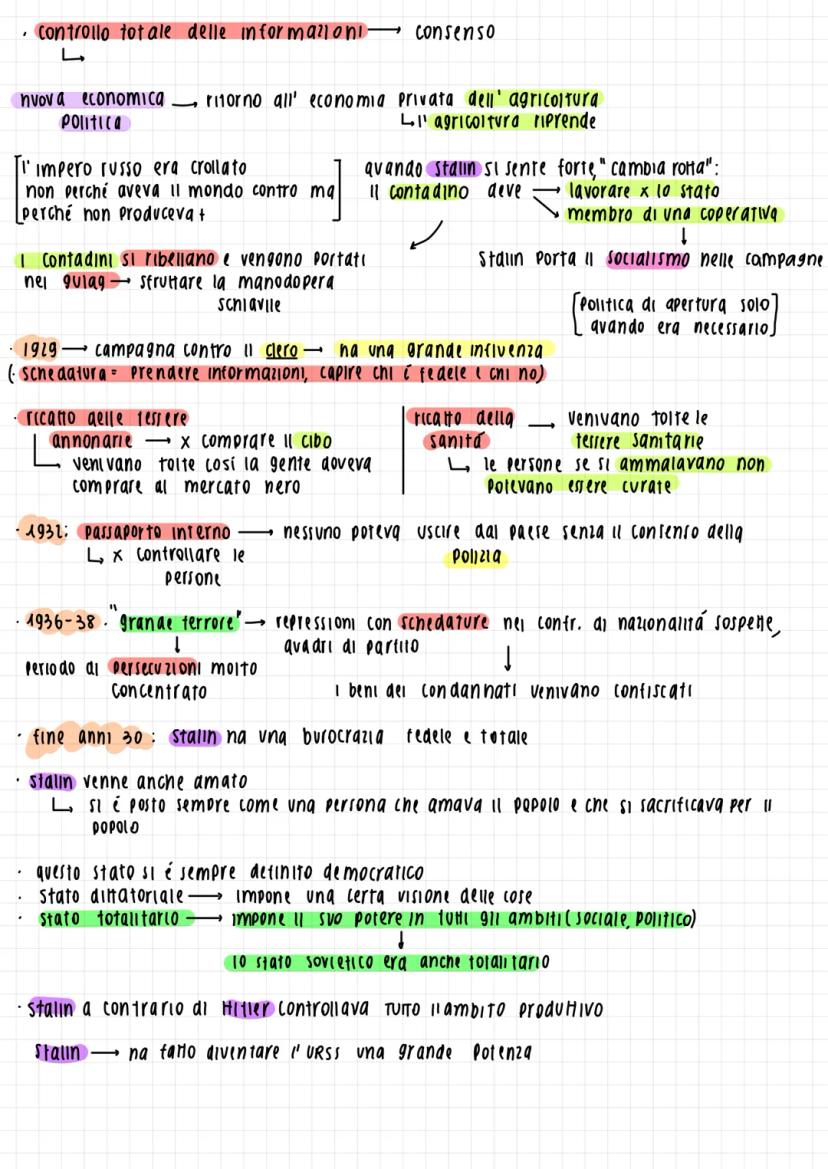 · controllo totale delle informazioni → consenso
↳
nuova economica → ritorno all' economia privata dell' agricoltura
politica ↳ l' agricoltura riprende
[l' impero russo era crollato
non perché aveva il mondo contro ma
perché non produceva +]
quando Stalin si sente forte, "cambia rotta":
il contadino deve → lavorare x lo stato
↘ membro di una coperativa
↓
Stalin porta il socialismo nelle campagne
[politica di apertura solo
quando era necessario]
I contadini si ribellano e vengono portati
nei gulag → sfruttare la manodopera
schiavile
· 1929 → campagna contro il clero → ha una grande influenza
(· schedatura = prendere informazioni, capire chi é fedele e chi no)
· ricatto delle tessere
annonarie → x comprare il cibo
↳ venivano tolte cosí la gente doveva
comprare al mercato nero
ricatto della → venivano tolte le
sanitá tessere sanitarie
↳ le persone se si ammalavano non
potevano essere curate
· 1932: passaporto interno → nessuno poteva uscire dal paese senza il consenso della
polizia
↳ x controllare le
persone
· 1936-38. "grande terrore" → repressioni con schedature nei confr. di nazionalitá sospette,
quadri di partito
↓
periodo di persecuzioni molto
concentrato
↓
i beni dei condannati venivano confiscati
· fine anni 30: Stalin ha una burocrazia fedele e totale
· Stalin venne anche amato
↳ si é posto sempre come una persona che amava il popolo e che si sacrificava per il
popolo
· questo stato si é sempre definito democratico
· Stato dittatoriale → impone una certa visione delle cose
· Stato totalitario → impone il suo potere in tutti gli ambiti (sociale, politico)
↓
lo stato sovietico era anche totalitario
· Stalin a contrario di Hitler controllava TUTTO l'ambito produttivo
Stalin → ha fatto diventare l' URSS una grande potenza